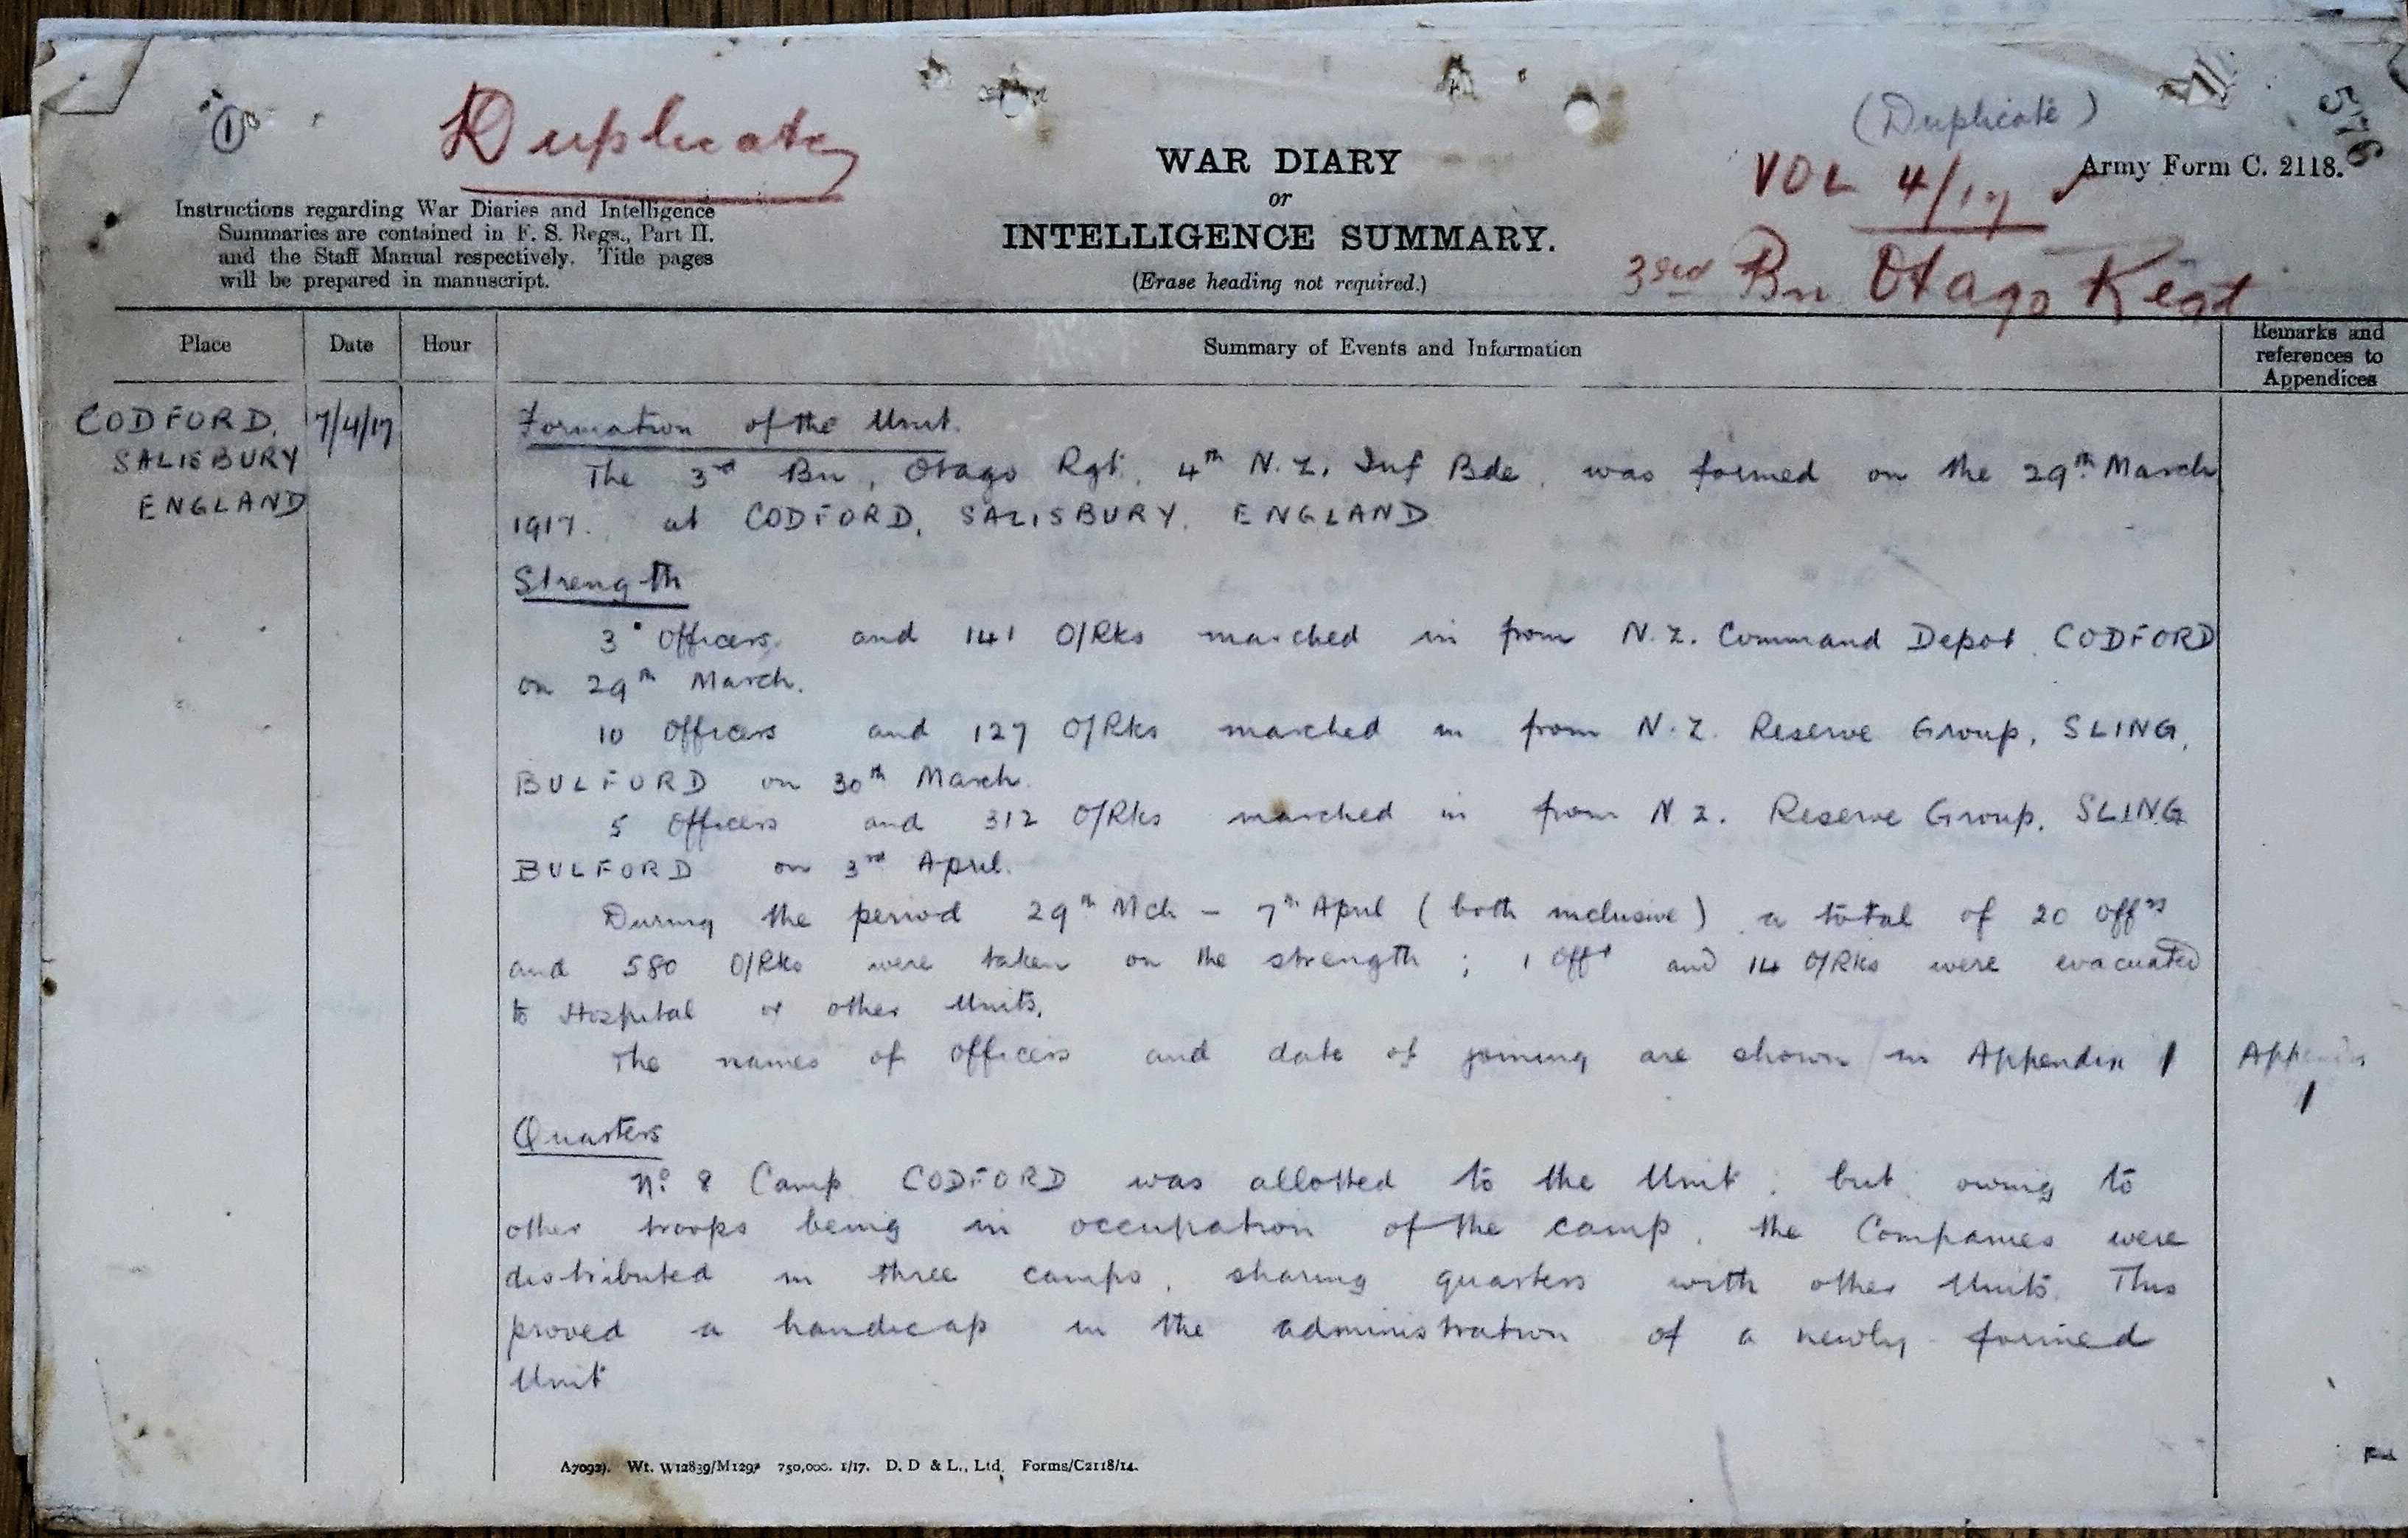 ①
Duplicate
(Duplicate)
576
Army Form C. 2118.
VOL 4/17 ✓
3rd Bn Otago Regt
WAR DIARY
or
INTELLIGENCE SUMMARY.
(Erase heading not required.)
Instructions regarding War Diaries and Intelligence
Summaries are contained in F. S. Regs., Part II.
and the Staff Manual respectively. Title pages
will be prepared in manuscript.
Place Date Hour Summary of Events and Information Remarks and
references to
Appendices
CODFORD, 7/4/17
SALISBURY
ENGLAND
Formation of the Unit.
The 3rd Bn, Otago Rgt, 4th N.Z. Inf Bde, was formed on the 29th March
1917. at CODFORD, SALISBURY, ENGLAND
Strength
3 Officers and 141 O/Rks marched in from N.Z. Command Depot, CODFORD
on 29th March.
10 Officers and 127 O/Rks marched in from N.Z. Reserve Group, SLING,
BULFORD on 30th March.
5 Officers and 312 O/Rks marched in from N.Z. Reserve Group, SLING
BULFORD on 3rd April.
During the period 29th Mch - 7th April (both inclusive) a total of 20 Offrs
and 580 O/Rks were taken on the strength; 1 Offr and 14 O/Rks were evacuated
to Hospital or other Units.
The names of officers and date of joining are shown in Appendix 1 Appendix
1
Quarters
No. 8 Camp CODFORD was allotted to the Unit, but, owing to
other troops being in occupation of the camp, the Companies were
distributed in three camps, sharing quarters with other Units. This
proved a handicap in the administration of a newly-formed
Unit
A7092). Wt. W12839/M1297 750,000. 1/17. D. D & L., Ltd. Forms/C2118/14.